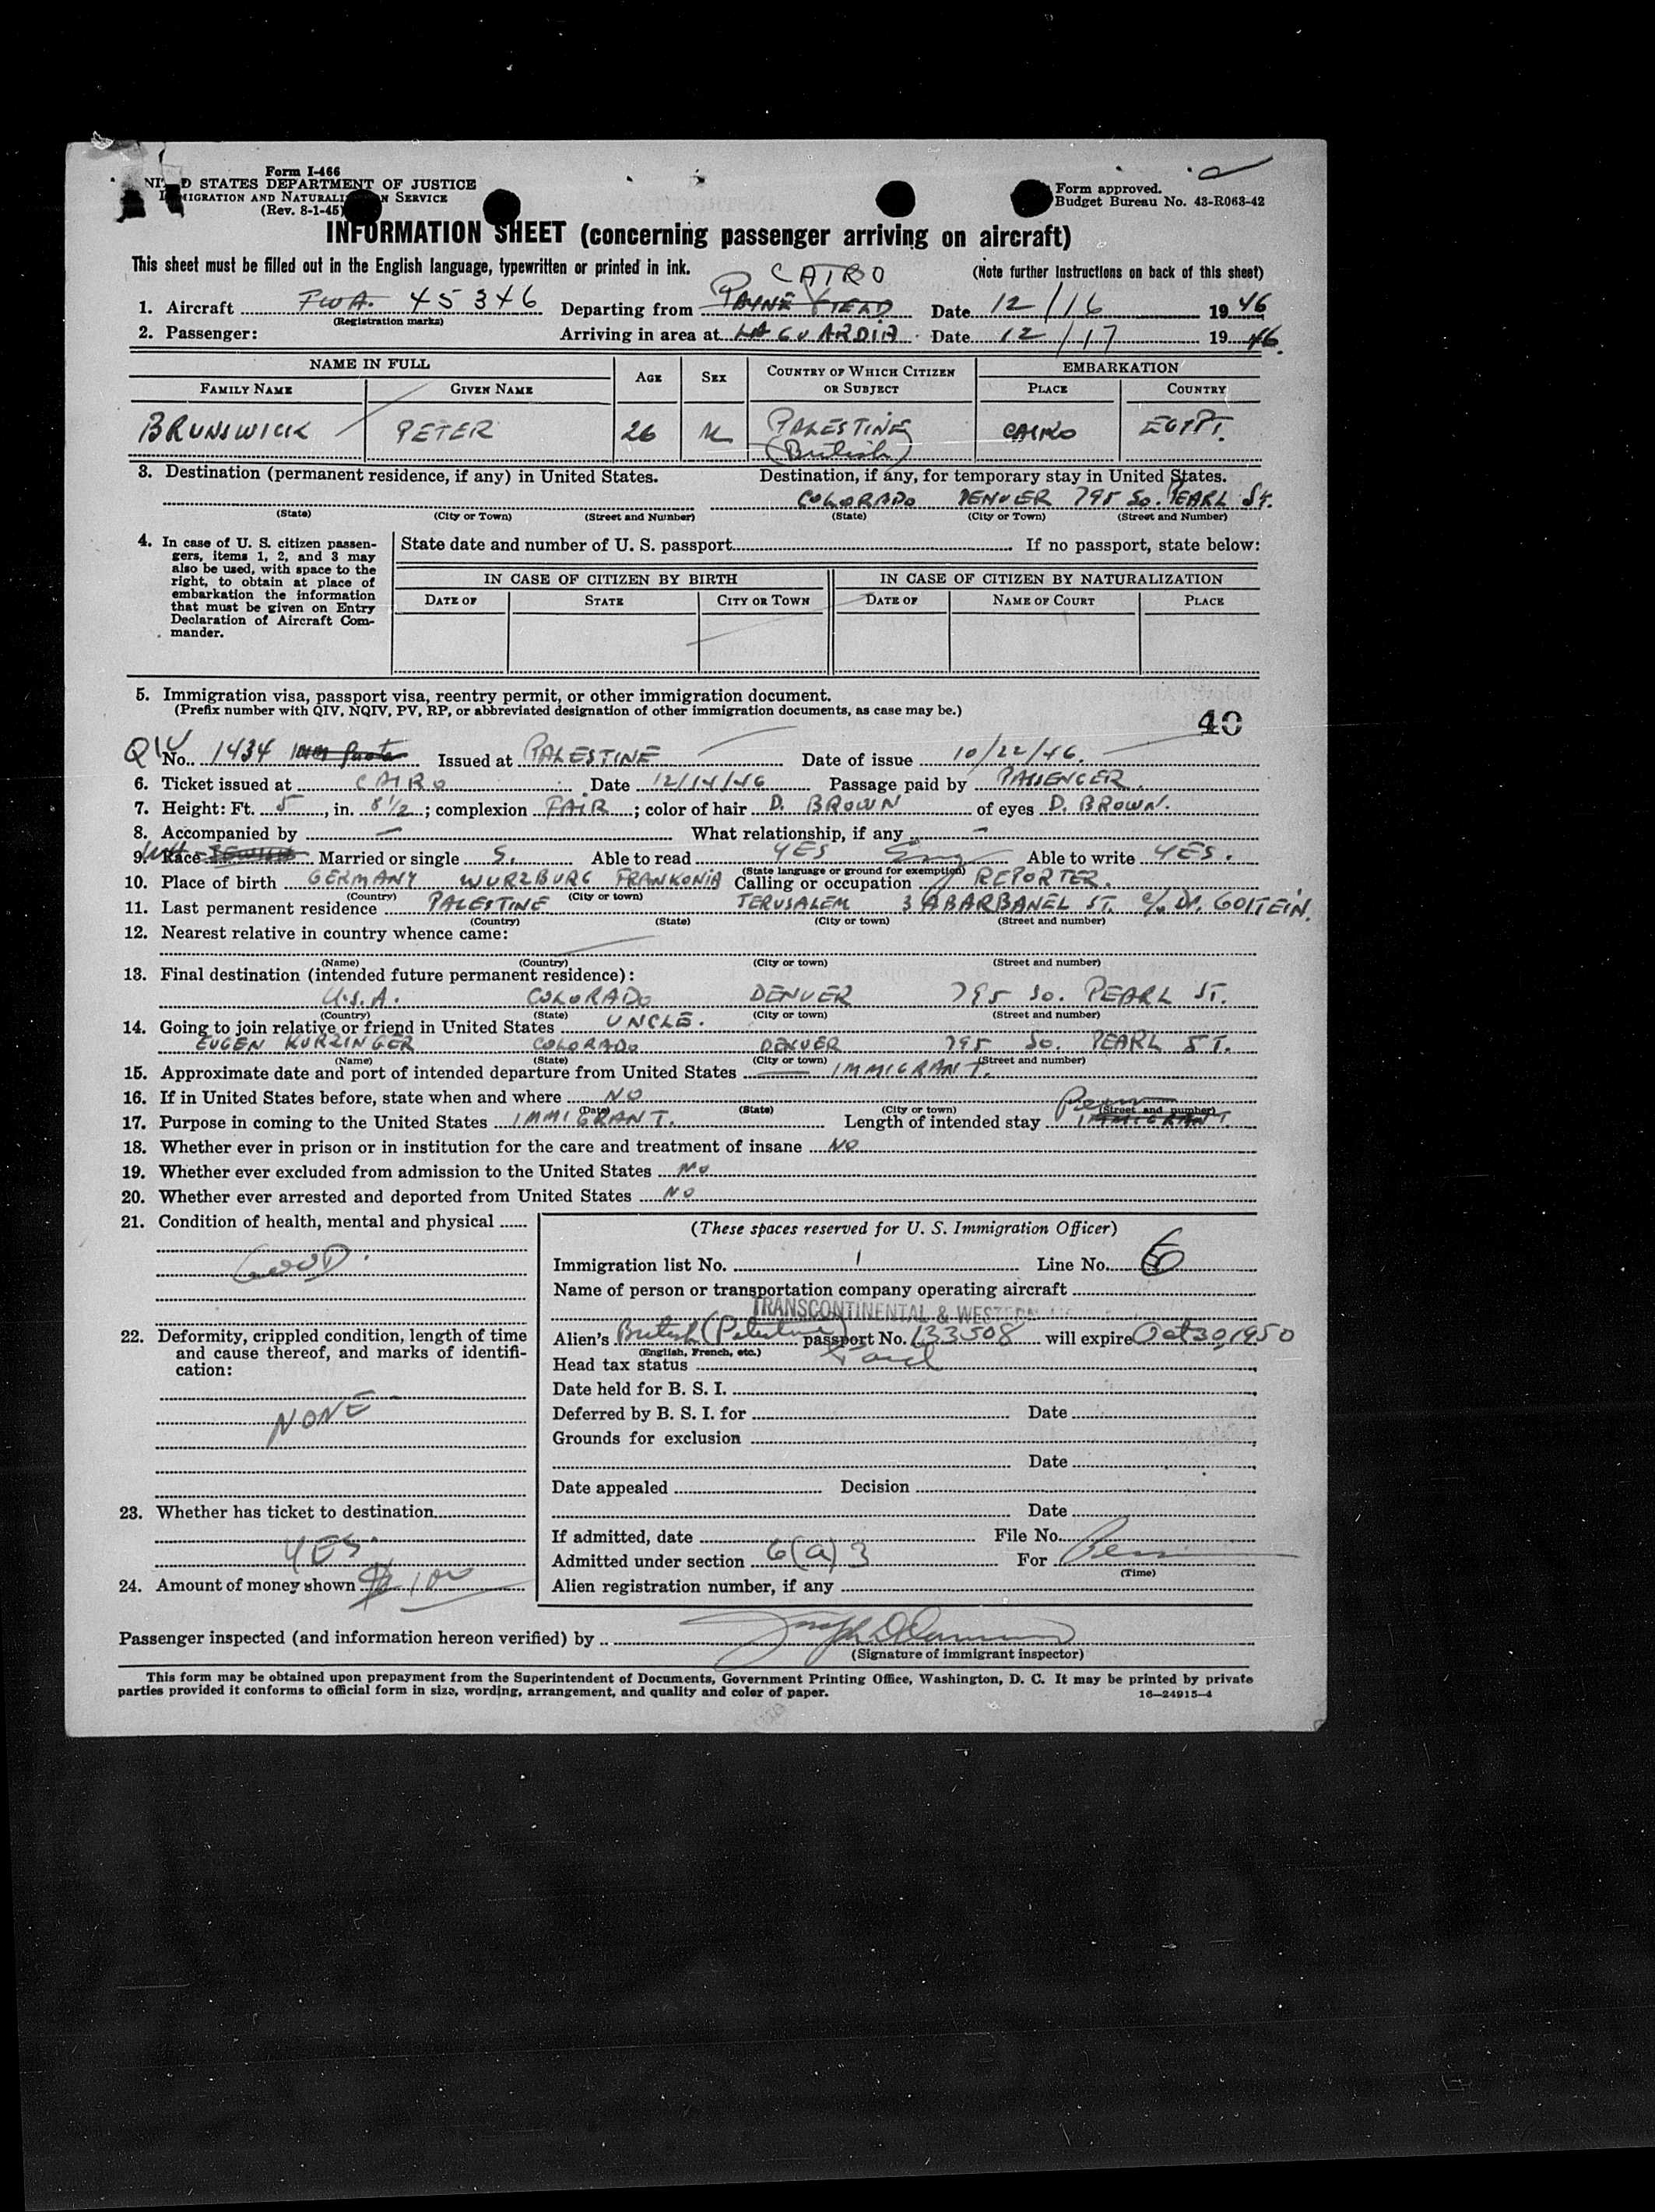 Form I-466
D STATES DEPARTMENT OF JUSTICE
MIGRATION AND NATURALI N SERVICE
(Rev. 8-1-45)
Form approved.
Budget Bureau No. 43-R063-42
INFORMATION SHEET (concerning passenger arriving on aircraft)
This sheet must be filled out in the English language, typewritten or printed in ink.
(Note further Instructions on back of this sheet)
CAIRO
1. Aircraft TWA. 45346 Departing from PAYNE FIELD Date 12/16 1946
(Registration marks)
2. Passenger: Arriving in area at LA GUARDIA Date 12/17 1946.
NAME IN FULL AGE SEX COUNTRY OF WHICH CITIZEN OR SUBJECT EMBARKATION
FAMILY NAME GIVEN NAME PLACE COUNTRY
BRUNSWICK PETER 26 M PALESTINE (British) CAIRO EGYPT.
3. Destination (permanent residence, if any) in United States. Destination, if any, for temporary stay in United States.
COLORADO DENVER 795 SO. PEARL ST.
(State) (City or Town) (Street and Number) (State) (City or Town) (Street and Number)
4. In case of U. S. citizen passengers, items 1, 2, and 3 may also be used, with space to the right, to obtain at place of embarkation the information that must be given on Entry Declaration of Aircraft Commander.
State date and number of U. S. passport If no passport, state below:
IN CASE OF CITIZEN BY BIRTH IN CASE OF CITIZEN BY NATURALIZATION
DATE OF STATE CITY OR TOWN DATE OF NAME OF COURT PLACE
5. Immigration visa, passport visa, reentry permit, or other immigration document.
(Prefix number with QIV, NQIV, PV, RP, or abbreviated designation of other immigration documents, as case may be.)
40
QIV No. 1434 Issued at PALESTINE Date of issue 10/22/46.
6. Ticket issued at CAIRO Date 12/14/46 Passage paid by PASSENGER.
7. Height: Ft. 5, in. 8 1/2; complexion FAIR; color of hair D. BROWN of eyes D. BROWN.
8. Accompanied by — What relationship, if any —
9. Race Married or single S. Able to read YES Eng Able to write YES.
(State language or ground for exemption)
10. Place of birth GERMANY WURZBURG FRANKONIA Calling or occupation REPORTER.
(Country) (City or town)
11. Last permanent residence PALESTINE JERUSALEM 3 ABARBANEL ST. c/o Dr. GOITEIN.
(Country) (State) (City or town) (Street and number)
12. Nearest relative in country whence came:
(Name) (Country) (City or town) (Street and number)
13. Final destination (intended future permanent residence):
U.S.A. COLORADO DENVER 795 SO. PEARL ST.
(Country) (State) (City or town) (Street and number)
14. Going to join relative or friend in United States UNCLE.
EUGEN KURZINGER COLORADO DENVER 795 SO. PEARL ST.
(Name) (State) (City or town) (Street and number)
15. Approximate date and port of intended departure from United States — IMMIGRANT.
16. If in United States before, state when and where NO
(Date) (State) (City or town) (Street and number)
17. Purpose in coming to the United States IMMIGRANT. Length of intended stay Perm IMMIGRANT
18. Whether ever in prison or in institution for the care and treatment of insane NO
19. Whether ever excluded from admission to the United States NO
20. Whether ever arrested and deported from United States NO
21. Condition of health, mental and physical
GOOD.
22. Deformity, crippled condition, length of time and cause thereof, and marks of identification:
NONE
23. Whether has ticket to destination
YES.
24. Amount of money shown $100
(These spaces reserved for U. S. Immigration Officer)
Immigration list No. 1 Line No. 6
Name of person or transportation company operating aircraft
TRANSCONTINENTAL & WESTERN
Alien's British (Palestine) passport No. 133508 will expire Oct 30, 1950
(English, French, etc.)
Head tax status Paid
Date held for B. S. I.
Deferred by B. S. I. for Date
Grounds for exclusion
Date
Date appealed Decision
Date
If admitted, date File No.
Admitted under section 6(a)3 For Perm
(Time)
Alien registration number, if any
Passenger inspected (and information hereon verified) by
(Signature of immigrant inspector)
This form may be obtained upon prepayment from the Superintendent of Documents, Government Printing Office, Washington, D. C. It may be printed by private
parties provided it conforms to official form in size, wording, arrangement, and quality and color of paper.
16—24915-4